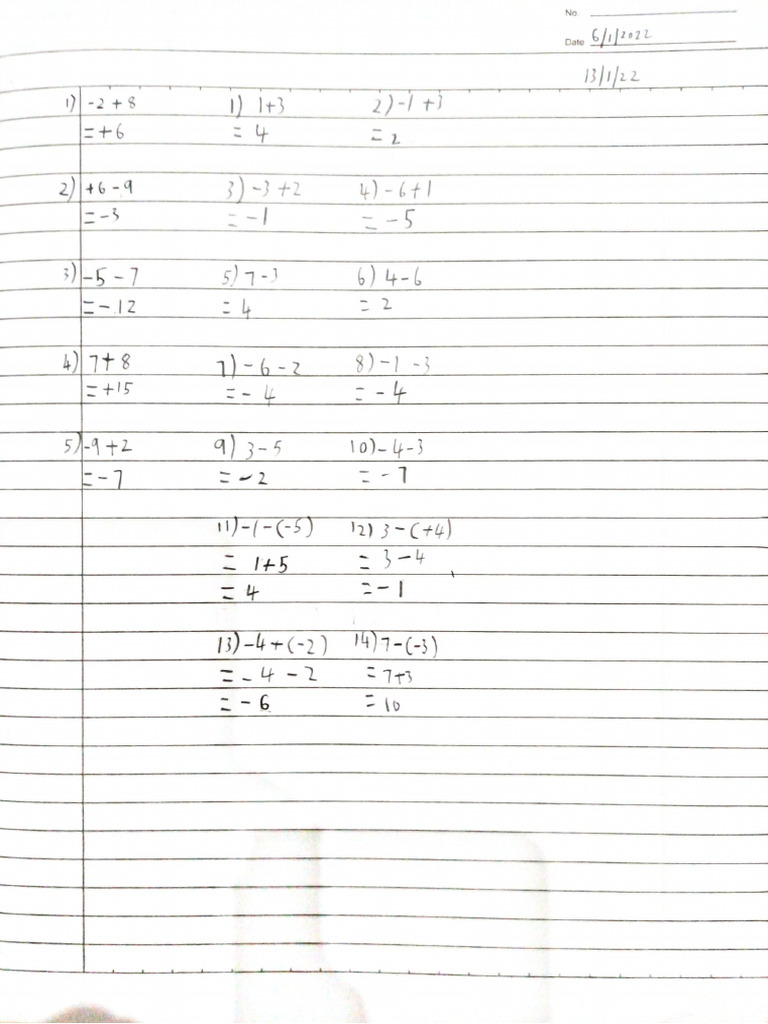 No.
Date 6/1/2022
13/1/22
1) -2+8 1) 1+3 2) -1+3
=+6 = 4 = 2
2) +6-9 3) -3+2 4) -6+1
=-3 = -1 = -5
3) -5-7 5) 7-3 6) 4-6
=-12 = 4 = 2
4) 7+8 7) -6-2 8) -1-3
=+15 =-4 =-4
5) -9+2 9) 3-5 10) -4-3
=-7 =-2 =-7
11) -1-(-5) 12) 3-(+4)
= 1+5 = 3-4
= 4 =-1
13) -4+(-2) 14) 7-(-3)
=-4-2 =7+3
=-6 =10